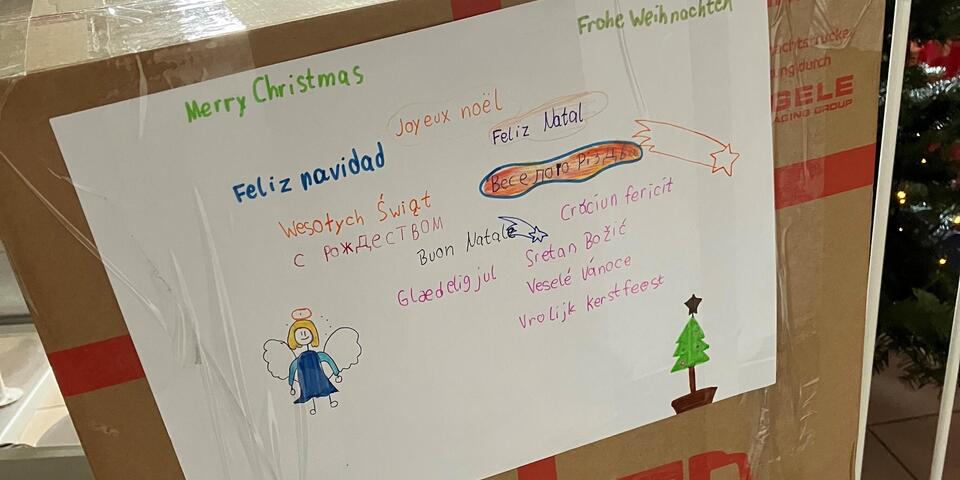 Frohe Weihnachten
Merry Christmas
Joyeux noël
Feliz Natal
Feliz navidad
Веселого Різдва
Wesołych Świąt
Crăciun fericit
с рождеством
Buon Natale
Sretan Božić
Glædelig jul
Veselé Vánoce
Vrolijk kerstfeest
durch
GING GROUP